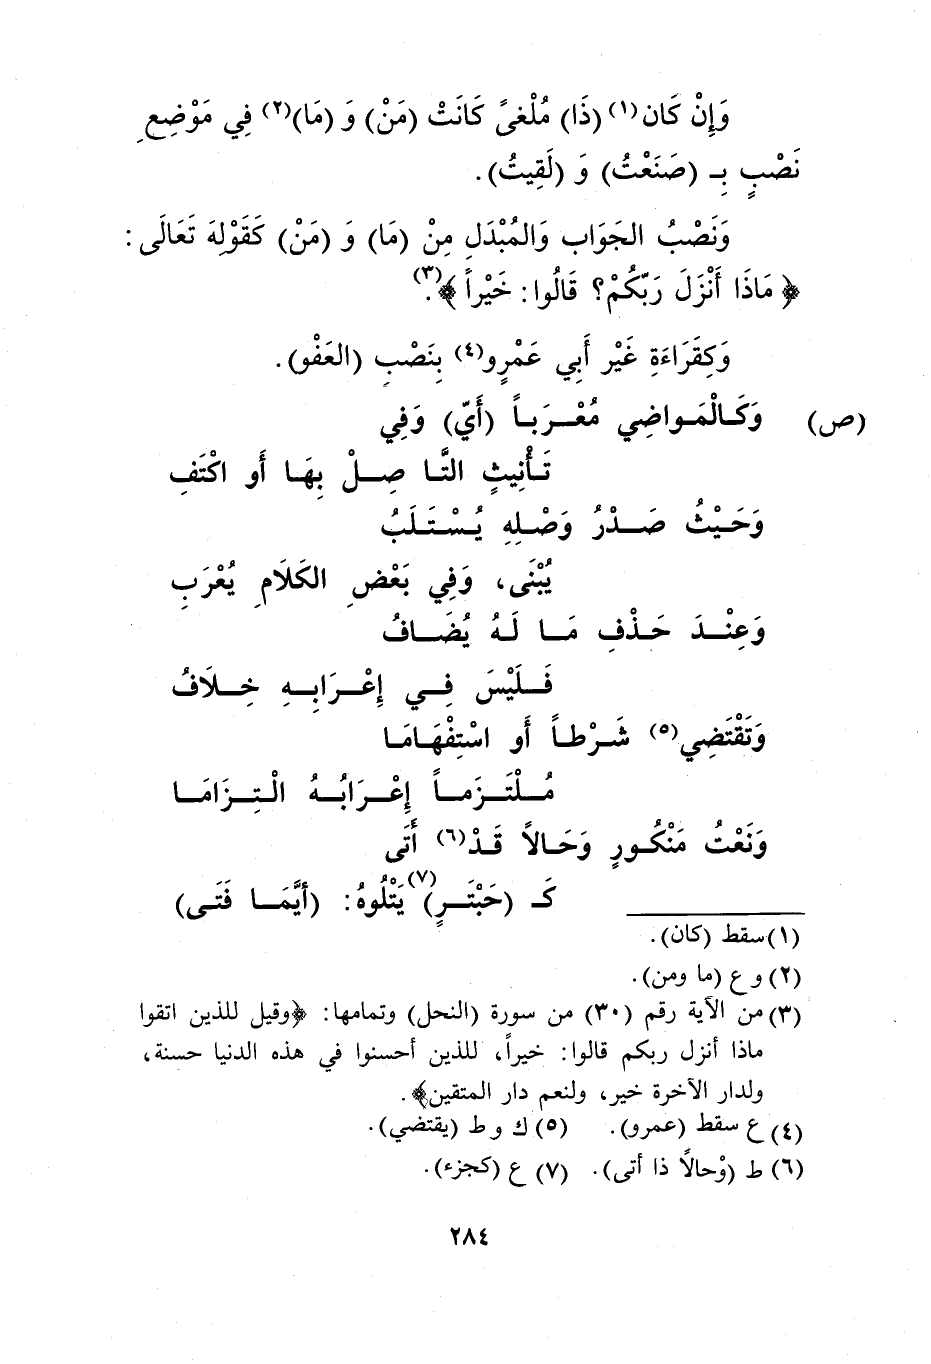 وَإِنْ كَان(١) (ذَا) مُلْغىً كَانَتْ (مَنْ) وَ (مَا)(٢) فِي مَوْضِعِ
نَصْبٍ بِـ (صَنَعْتُ) وَ (لَقِيتُ).
وَنَصْبُ الجَوَابِ وَالمُبْدَلِ مِنْ (مَا) وَ (مَنْ) كَقَوْلِهَ تَعَالَى:
﴿مَاذَا أَنْزَلَ رَبّكُمْ؟ قَالُوا: خَيْراً﴾(٣).
وَكِقَرَاءَةِ غَيْر أَبِي عَمْرٍو(٤) بِنَصْبِ (العَفْو).
(ص) وَكَـالْمَـواضِي مُعْـرَبـاً (أَيّ) وَفِي
تَـأْنِيثٍ التَّـا صِـلْ بِهَـا أَو اكْتَفِ
وَحَـيْثُ صَـدْرُ وَصْـلِهِ يُـسْـتَـلَبُ
يُبْنَى، وَفِي بَعْضِ الكَلَامِ يُعْرَبِ
وَعِنْـدَ حَـذْفِ مَـا لَـهُ يُضَـافُ
فَـلَيْسَ فِـي إِعْـرَابِـهِ خِـلَافُ
وَتَقْتَضِي(٥) شَـرْطـاً أَو اسْتِفْهَـامَـا
مُـلْتَـزِمـاً إِعْـرَابُـهُ الْـتِـزَامَـا
وَنَعْتُ مَنْكُـورٍ وَحَـالاً قَـدْ(٦) أَتَى
كَـ (حَبْتَـرٍ)(٧) يَتْلُوهُ: (أَيَّمَـا فَتَـى)
(١) سقط (كان).
(٢) و ع (ما ومن).
(٣) من الآية رقم (٣٠) من سورة (النحل) وتمامها: ﴿وقيل للذين اتقوا
ماذا أنزل ربكم قالوا: خيراً، للذين أحسنوا في هذه الدنيا حسنة،
ولدار الآخرة خير، ولنعم دار المتقين﴾.
(٤) ع سقط (عمرو). (٥) ك و ط (يقتضي).
(٦) ط (وْحالاً ذا أتى). (٧) ع (كجزء).
٢٨٤